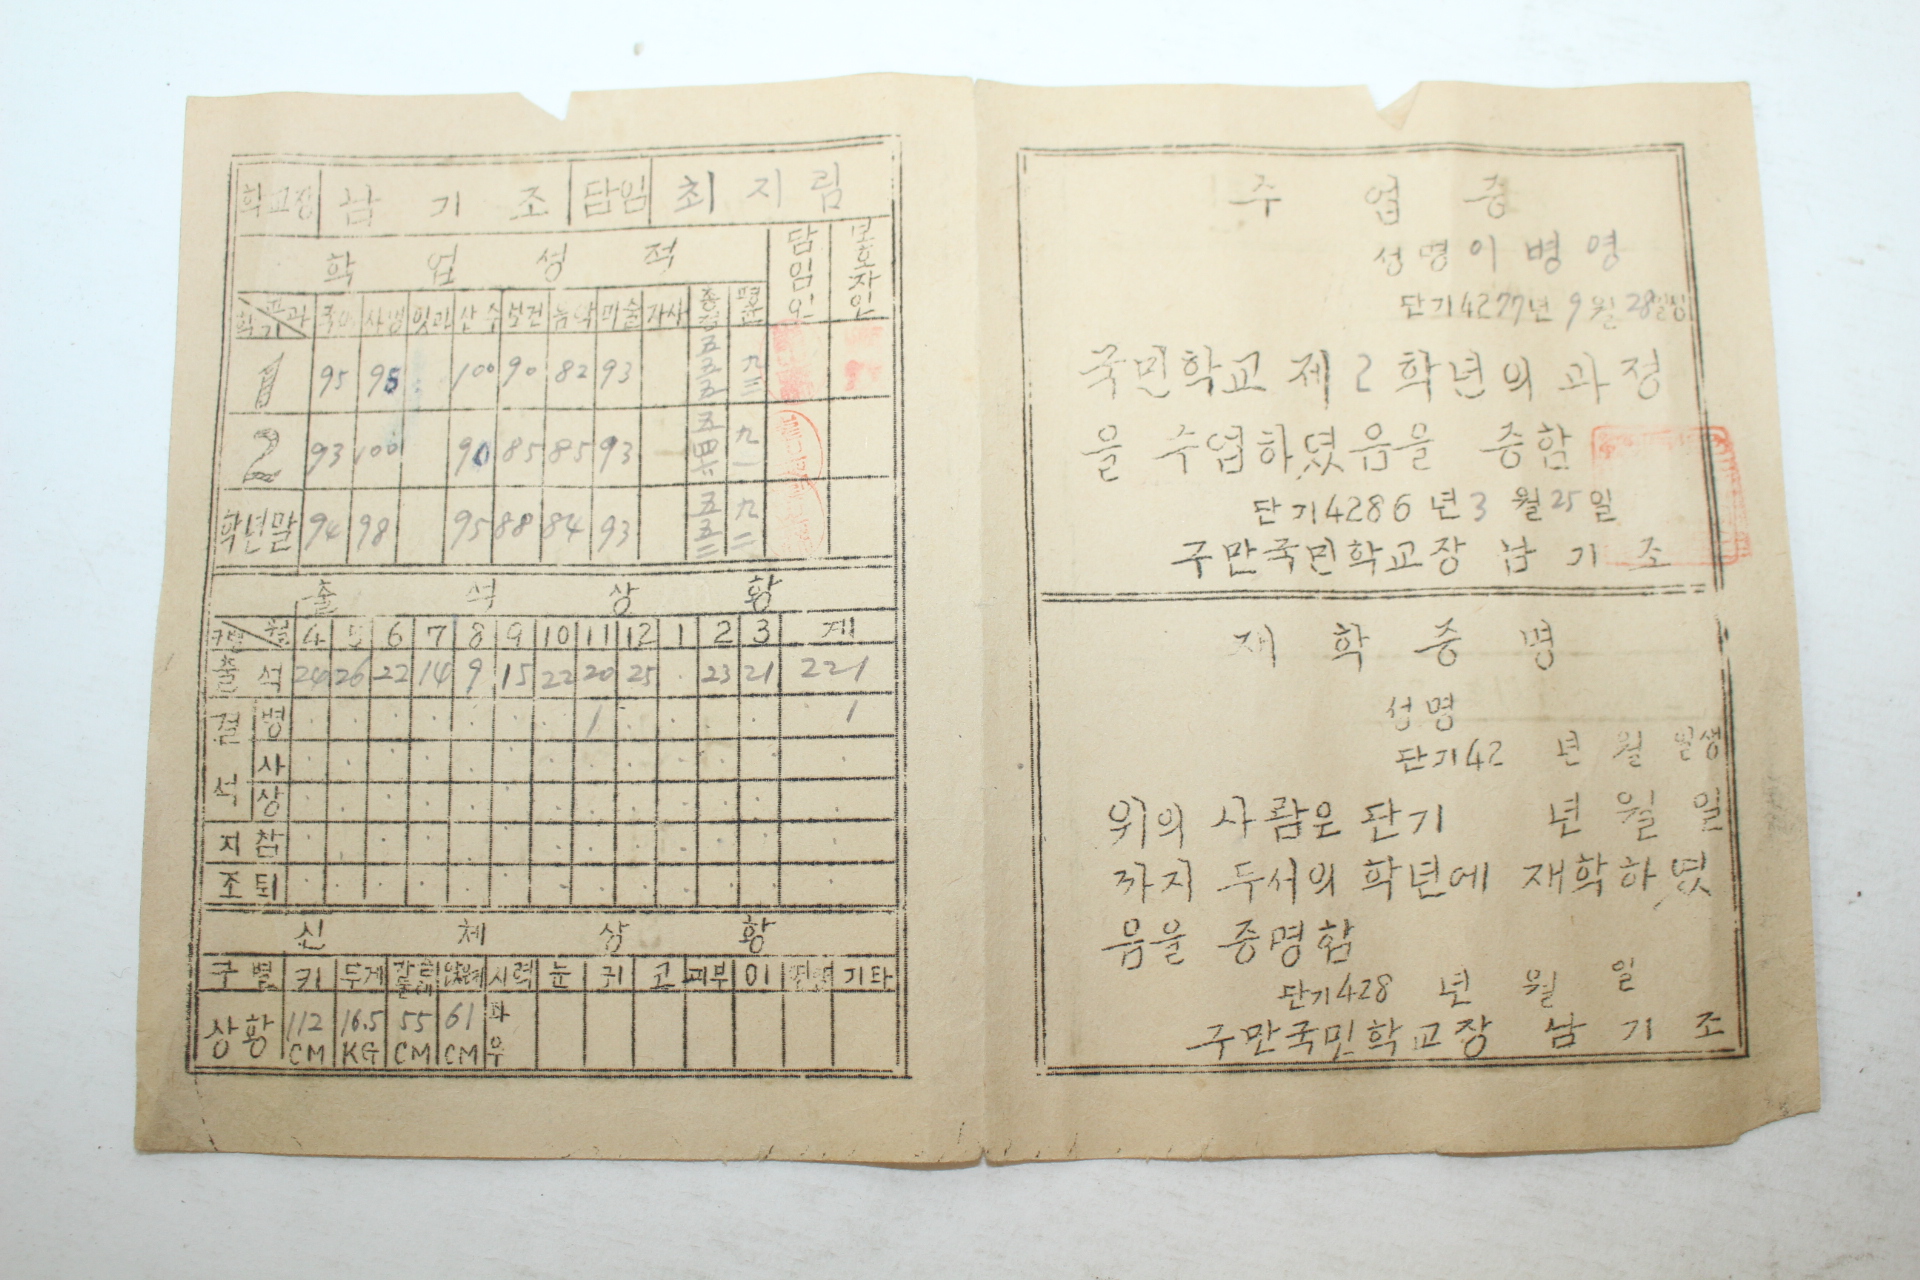 학교장 남기조 담임 최지림
학업성적 담임인 보호자인
학기 교과 국어 사생 산수 보건 음악 미술 총점 평균
1 95 95 100 90 82 93 五五五 九三
2 93 100 90 85 85 93 五四六 九一
학년말 94 98 95 88 84 93 五五二 九二
출석상황
구별 월 4 5 6 7 8 9 10 11 12 1 2 3 계
출석 24 26 22 14 9 15 22 20 25 23 21 221
결석 병 1 1
사
상
지참
조퇴
신체상황
구별 키 무게 가슴둘레 앉은키 시력 눈 귀 코 피부 이 기타
상황 112 CM 16.5 KG 55 CM 61 CM 좌 우
수업증
성명 이병영
단기 4277년 9월 28일생
국민학교 제 2 학년의 과정
을 수업하였음을 증함
단기 4286년 3월 25일
구만국민학교장 남기조
재학증명
성명
단기 42 년 월 일생
위의 사람은 단기 년 월 일
까지 두서의 학년에 재학하였
음을 증명함
단기 428 년 월 일
구만국민학교장 남기조